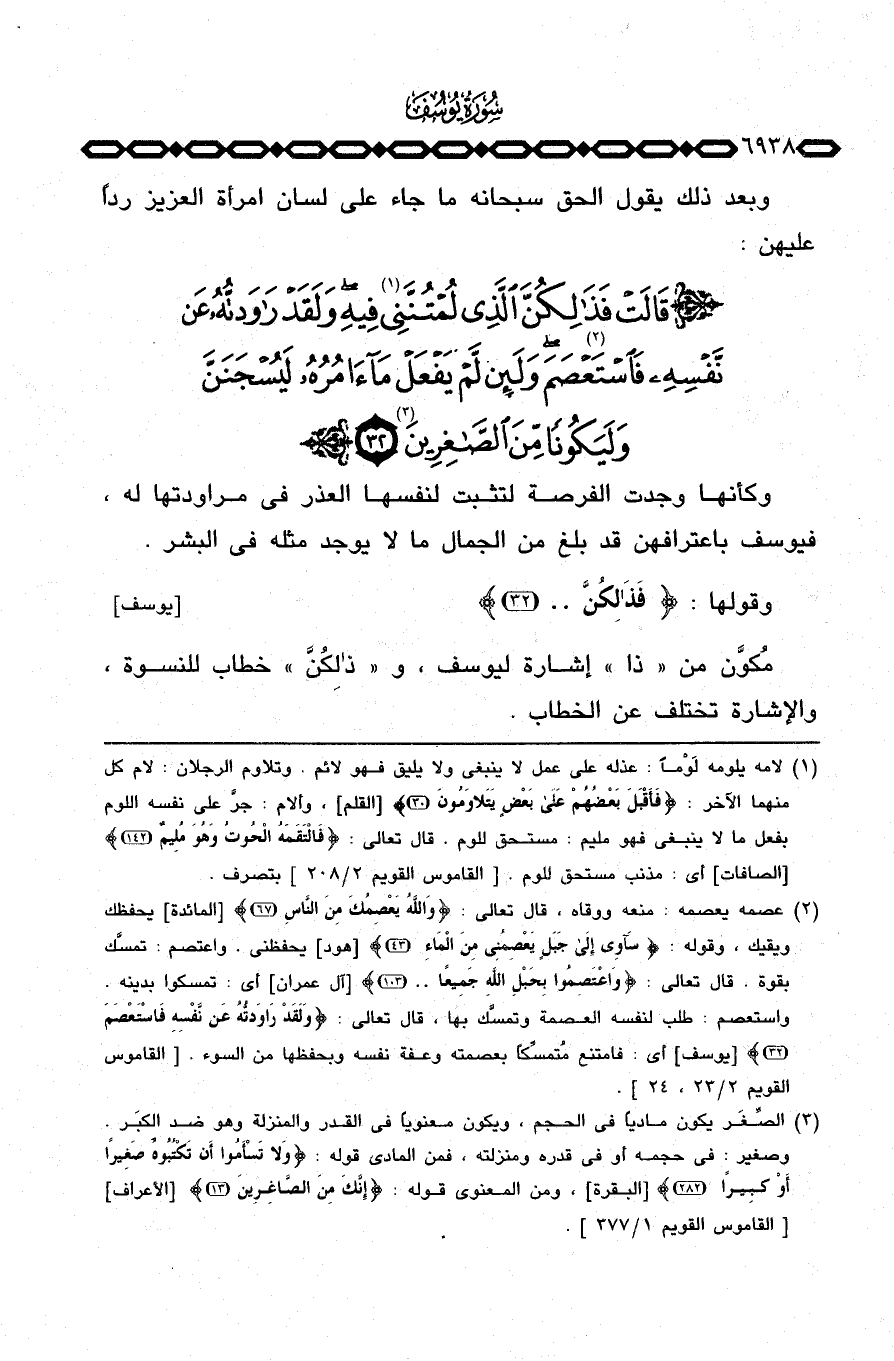 سُورَةُ يُوسُفَ
٦٩٣٨
وبعد ذلك يقول الحق سبحانه ما جاء على لسان امرأة العزيز رداً
عليهن :
قَالَتْ فَذَٰلِكُنَّ ٱلَّذِى لُمْتُنَّنِى (١) فِيهِ ۖ وَلَقَدْ رَٰوَدتُّهُۥ عَن
نَّفْسِهِۦ فَٱسْتَعْصَمَ (٢) ۖ وَلَئِن لَّمْ يَفْعَلْ مَآ ءَامُرُهُۥ لَيُسْجَنَنَّ
وَلَيَكُونًا مِّنَ ٱلصَّٰغِرِينَ (٣) ٣٢
وكأنهـا وجدت الفرصـة لتثـبت لنفسهـا العذر فى مـراودتهـا له ،
فيوسف باعترافهن قد بلغ من الجمال ما لا يوجد مثله فى البشر .
وقولها : ﴿ فَذَٰلِكُنَّ .. (٣٢) ﴾ [يوسف]
مُكوَّن من « ذا » إشـارة ليوسف ، و « ذٰلِكُنَّ » خطاب للنسـوة ،
والإشارة تختلف عن الخطاب .
(١) لامه يلومه لَوْمـاً : عذله على عمل لا ينبغى ولا يليق فـهو لائم . وتلاوم الرجلان : لام كل
منهما الآخر : ﴿ فَأَقْبَلَ بَعْضُهُمْ عَلَىٰ بَعْضٍ يَتَلاوَمُونَ (٣٠) ﴾ [القلم] ، وألام : جرَّ على نفسه اللوم
بفعل ما لا ينبـغى فهو مليم : مستـحق للوم . قال تعالى : ﴿ فَالْتَقَمَهُ الْحُوتُ وَهُوَ مُلِيمٌ (١٤٢) ﴾
[الصافات] أى : مذنب مستحق للوم . [ القاموس القويم ٢٠٨/٢ ] بتصرف .
(٢) عصمه يعصمه : منعه ووقاه ، قال تعالى : ﴿ وَاللَّهُ يَعْصِمُكَ مِنَ النَّاسِ (٦٧) ﴾ [المائدة] يحفظك
ويقيك ، وقوله : ﴿ سَآوِى إِلَىٰ جَبَلٍ يَعْصِمُنِى مِنَ الْمَاءِ (٤٣) ﴾ [هود] يحفظنى . واعتصم : تمسَّك
بقوة . قال تعالى : ﴿ وَاعْتَصِمُوا بِحَبْلِ اللَّهِ جَمِيعًا .. (١٠٣) ﴾ [آل عمران] أى : تمسكوا بدينه .
واستعصم : طلب لنفسه العـصمة وتمسَّك بها ، قال تعالى : ﴿ وَلَقَدْ رَاوَدتُّهُ عَن نَّفْسِهِ فَاسْتَعْصَمَ
(٣٢) ﴾ [يوسف] أى : فامتنع مُتمسِّكاً بعصمته وعـفة نفسه وبحفظها من السوء . [ القاموس
القويم ٢٣/٢ ، ٢٤ ] .
(٣) الصِّغَـر يكون مـادياً فى الحـجم ، ويكون مـعنوياً فى القدر والمنزلة وهو ضـد الكبَـر .
وصغير : فى حجمـه أو فى قدره ومنزلته ، فمن المادى قوله : ﴿ وَلا تَسْأَمُوا أَن تَكْتُبُوهُ صَغِيرًا
أَوْ كَبِيـرًا (٢٨٢) ﴾ [البـقرة] ، ومن المـعنوى قـوله : ﴿ إِنَّكَ مِنَ الصَّاغِرِينَ (١٣) ﴾ [الأعراف]
[ القاموس القويم ٣٧٧/١ ] .